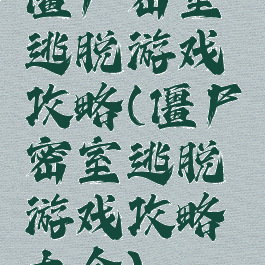 僵尸密室
逃脱游戏
攻略(僵尸
密室逃脱
游戏攻略
大全)